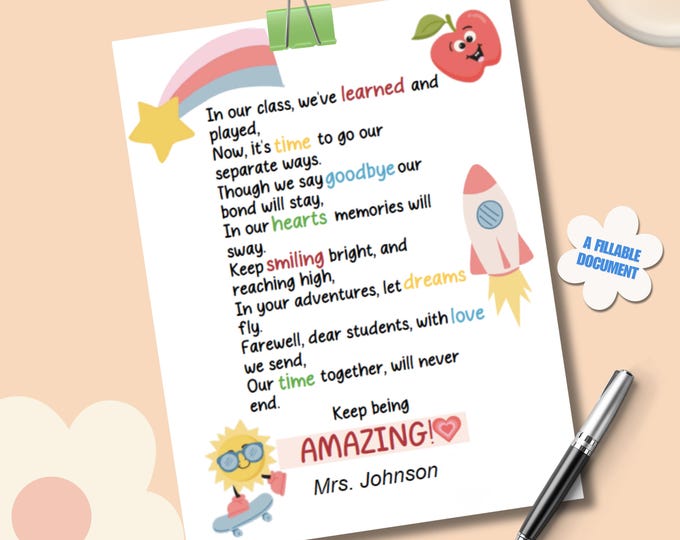 In our class, we've learned and
played,
Now, it's time to go our
separate ways.
Though we say goodbye our
bond will stay,
In our hearts memories will
sway.
Keep smiling bright, and
reaching high,
In your adventures, let dreams
fly.
Farewell, dear students, with love
we send,
Our time together, will never
end.
Keep being
AMAZING!
Mrs. Johnson
A FILLABLE
DOCUMENT